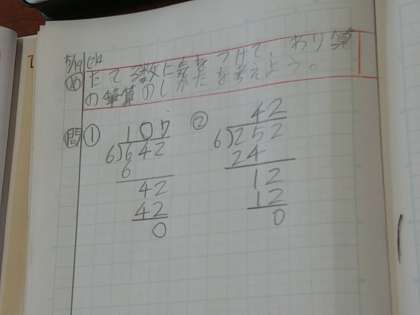 5/19(火)
め たてる数に気をつけて、わり算
の筆算のしかたを考えよう。
問 ① 107
6)642
6
42
42
0
② 42
6)252
24
12
12
0